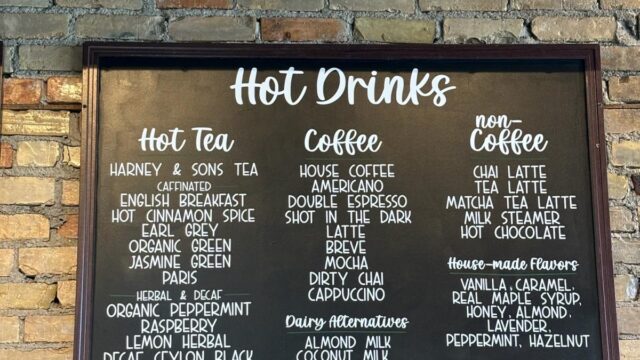 Hot Drinks
Hot Tea
HARNEY & SONS TEA
CAFFINATED
ENGLISH BREAKFAST
HOT CINNAMON SPICE
EARL GREY
ORGANIC GREEN
JASMINE GREEN
PARIS
HERBAL & DECAF
ORGANIC PEPPERMINT
RASPBERRY
LEMON HERBAL
DECAF CEYLON BLACK
Coffee
HOUSE COFFEE
AMERICANO
DOUBLE ESPRESSO
SHOT IN THE DARK
LATTE
BREVE
MOCHA
DIRTY CHAI
CAPPUCCINO
Dairy Alternatives
ALMOND MILK
COCONUT MILK
non-
Coffee
CHAI LATTE
TEA LATTE
MATCHA TEA LATTE
MILK STEAMER
HOT CHOCOLATE
House-made Flavors
VANILLA, CARAMEL,
REAL MAPLE SYRUP,
HONEY, ALMOND,
LAVENDER,
PEPPERMINT, HAZELNUT